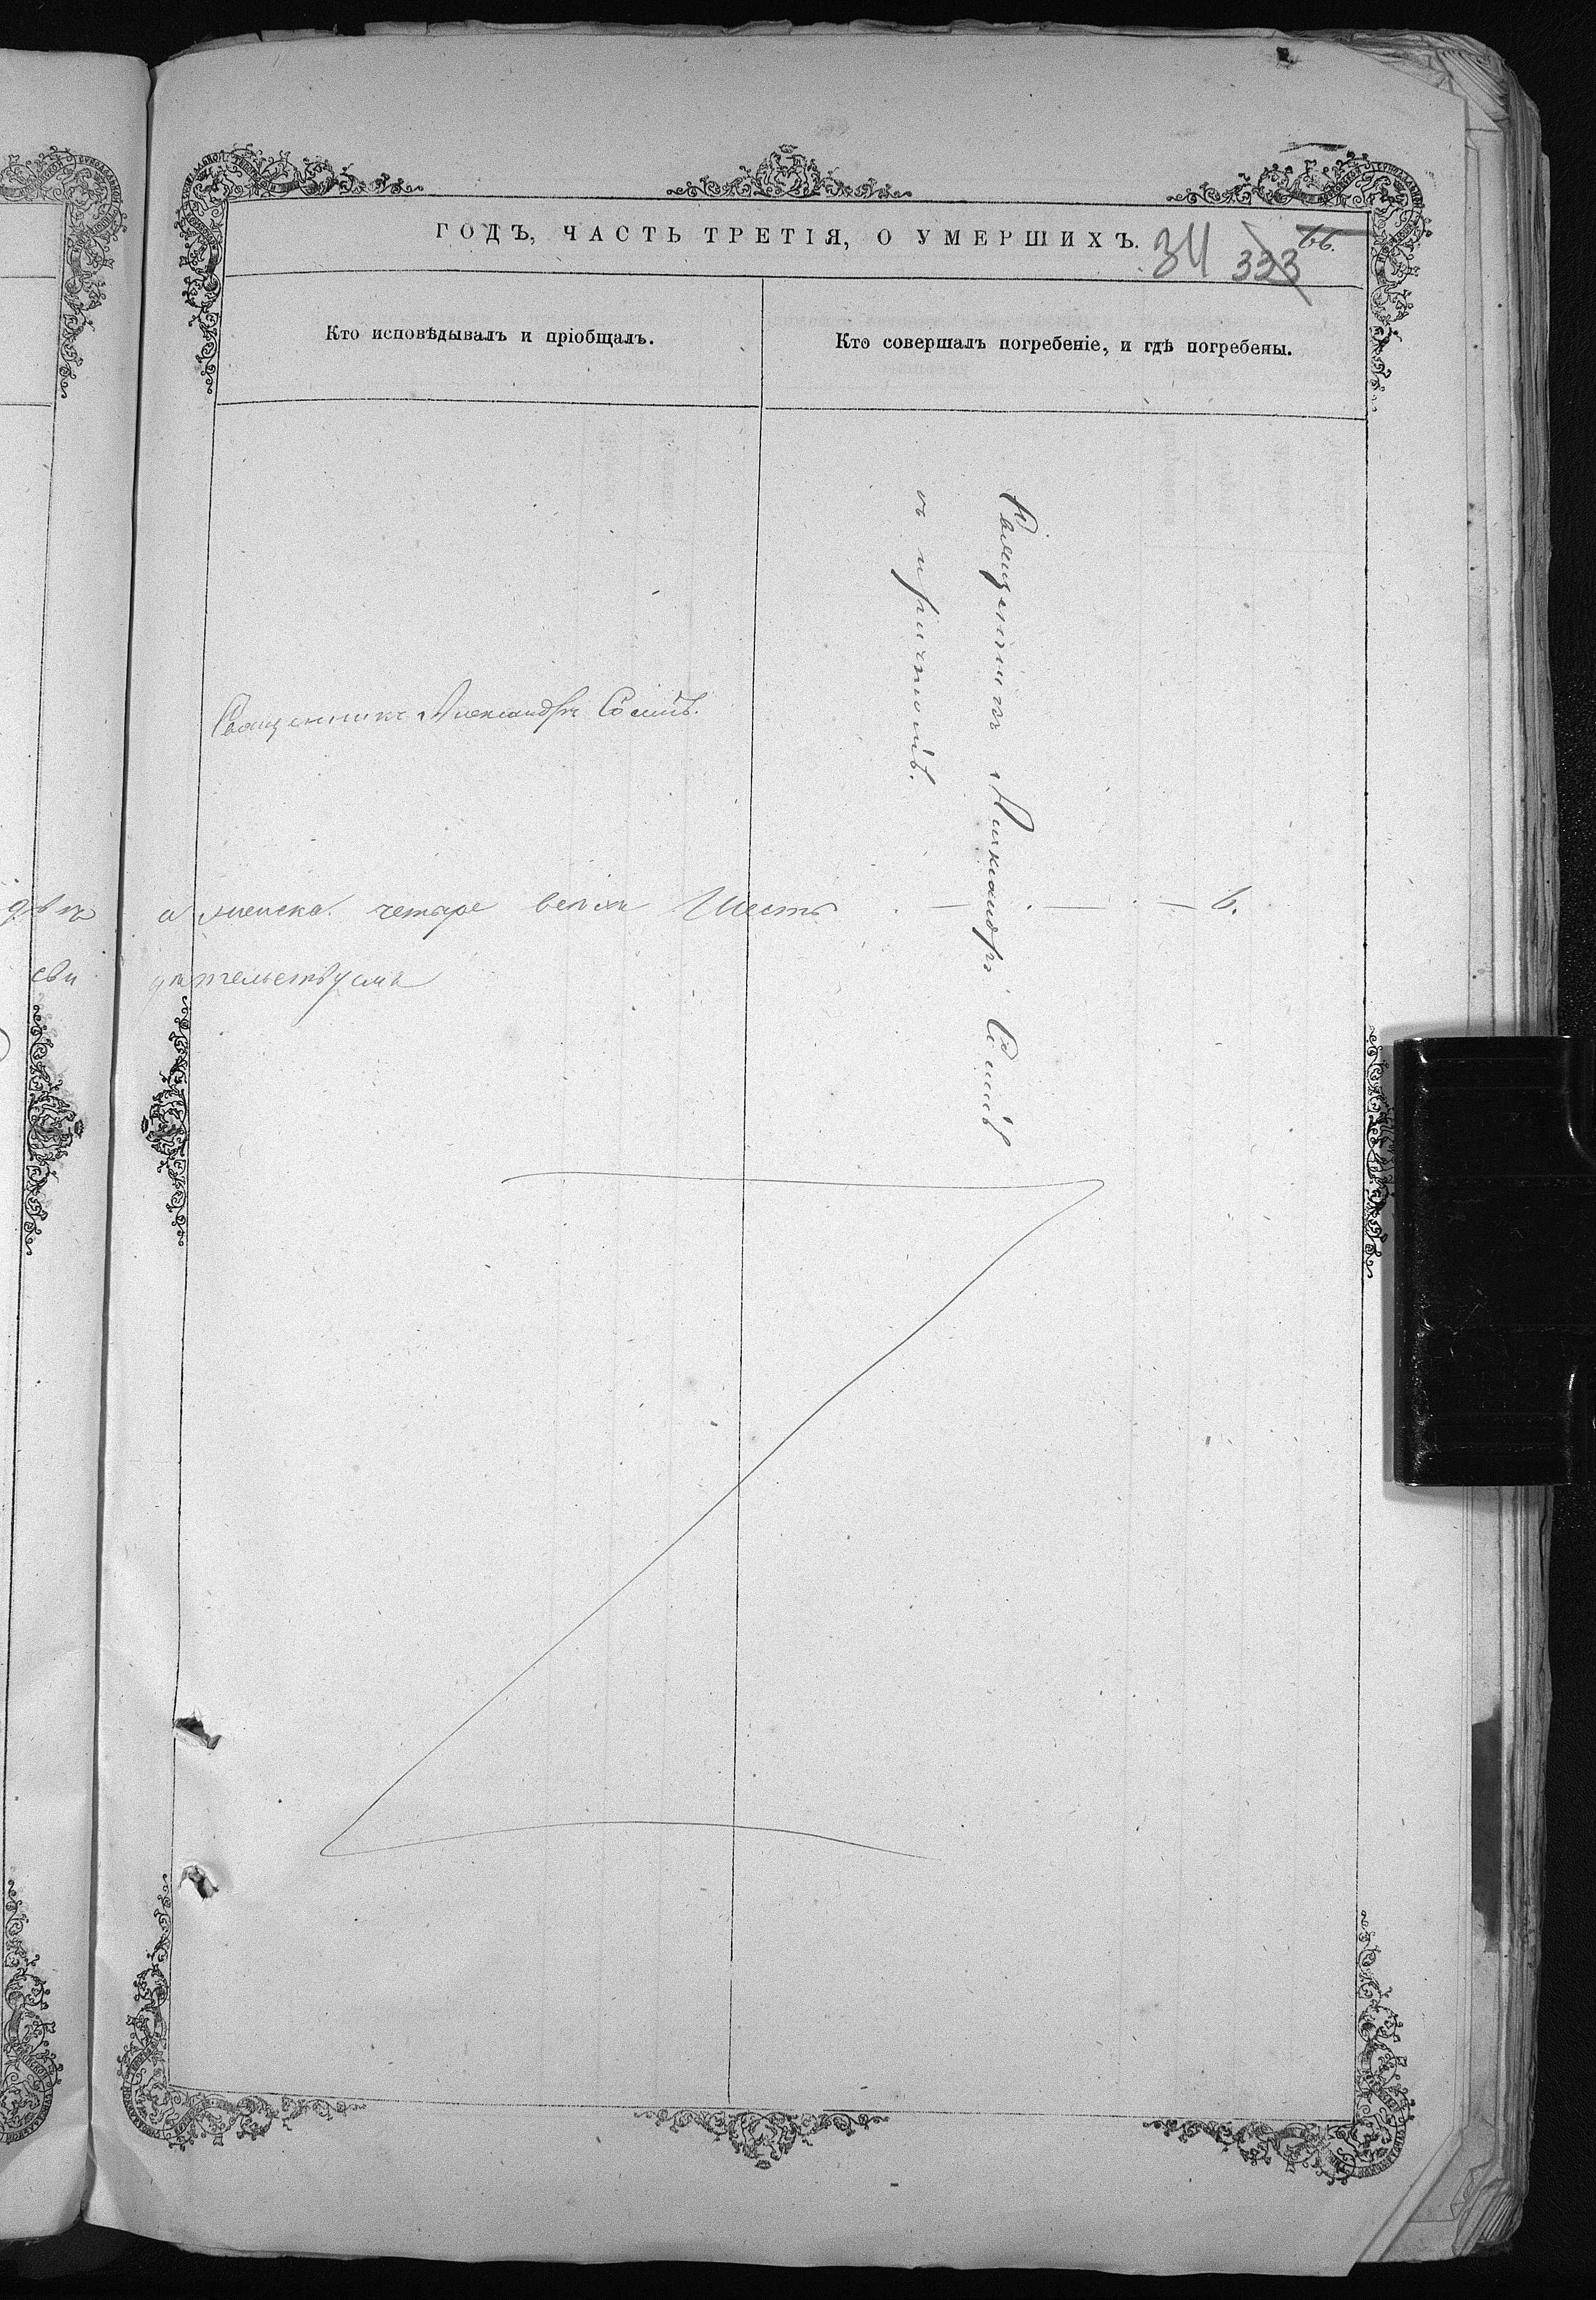 ГОДЪ, ЧАСТЬ ТРЕТІЯ, О УМЕРШИХЪ.
34 333 66.
Кто исповѣдывалъ и пріобщалъ.
Кто совершалъ погребеніе, и гдѣ погребены.
Священникъ Александръ
Священникъ Александръ
съ причтомъ.
женска четыре всѣхъ Шесть — . — . — 6.
сви дѣтельствуемъ